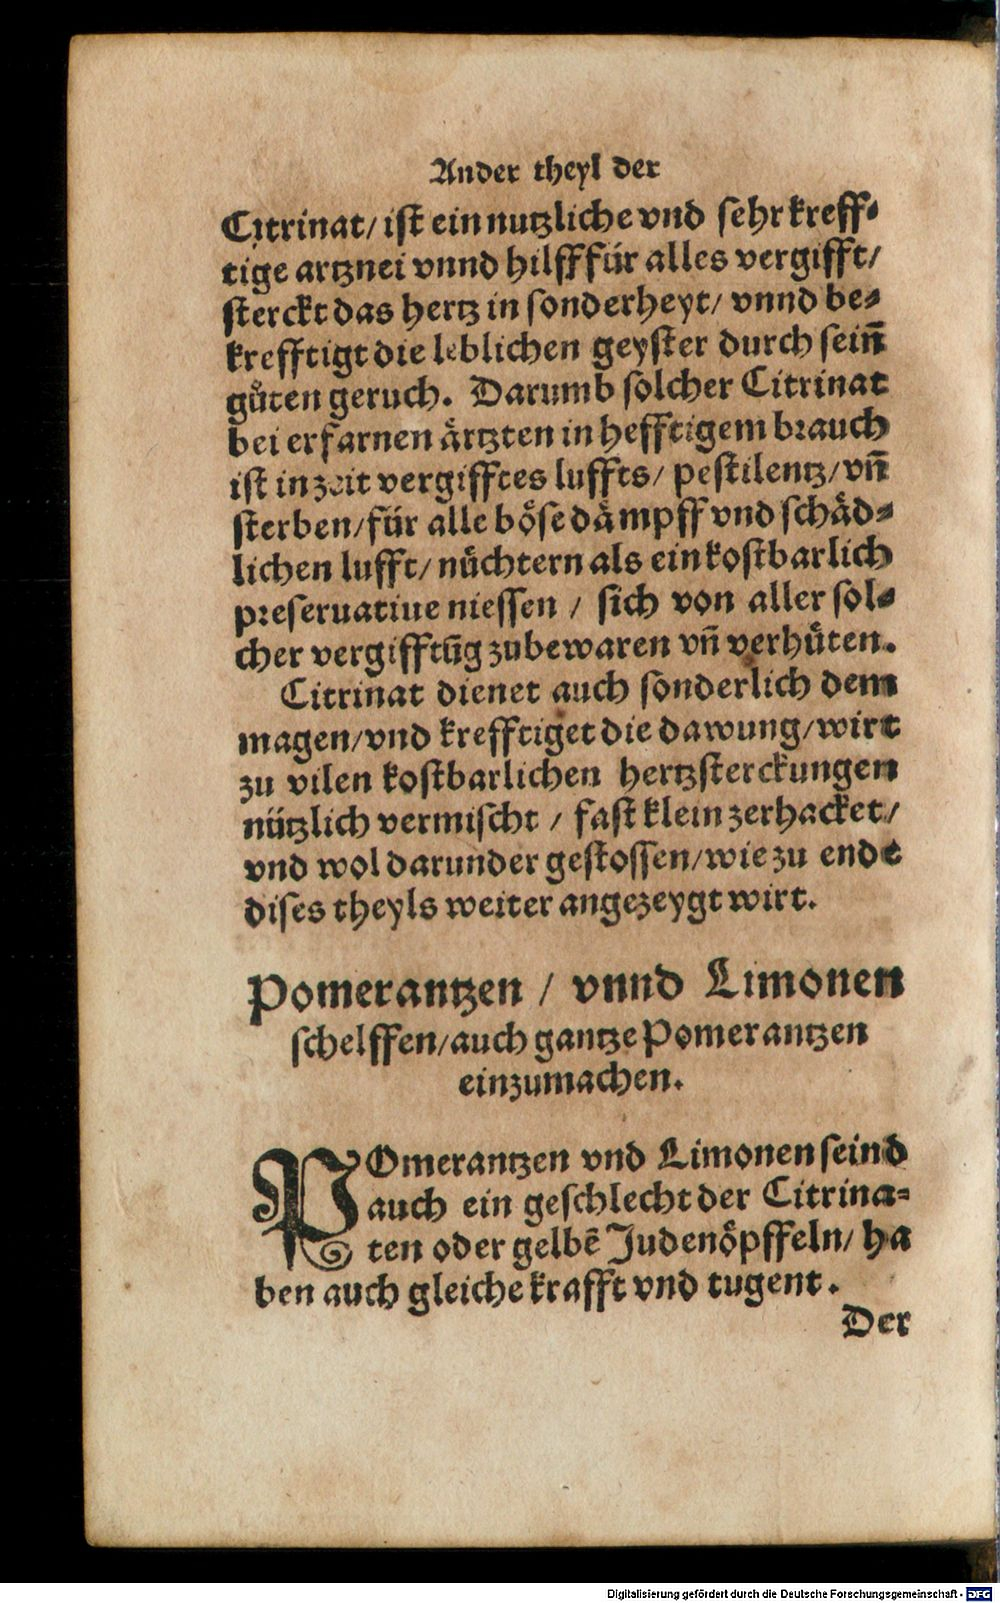 Ander theyl der
Citrinat/ ist ein nutzliche vnd sehr kreff⸗
tige artznei vnnd hilff für alles vergifft/
sterckt das hertz in sonderheyt/ vnnd be⸗
krefftigt die leblichen geyster durch sein̄
gůten geruch. Darumb solcher Citrinat
bei erfarnen ärtzten in hefftigem brauch
ist in zeit vergifftes luffts/ pestilentz/ vn̄
sterben/ für alle böse dämpff vnd schäd⸗
lichen lufft/ nüchtern als ein kostbarlich
preseruatiue niessen / sich von aller sol⸗
cher vergifftūg zubewaren vn̄ verhüten.
Citrinat dienet auch sonderlich dem
magen/ vnd krefftiget die dawung/ wirt
zu vilen kostbarlichen hertzsterckungen
nützlich vermischt / fast klein zerhacket/
vnd wol darunder gestossen/ wie zu ende
dises theyls weiter angezeygt wirt.
Pomerantzen / vnnd Limonen
schelffen/ auch gantze Pomerantzen
einzumachen.
POmerantzen vnd Limonen seind
auch ein geschlecht der Citrina⸗
ten oder gelbē Judenöpffeln/ ha
ben auch gleiche krafft vnd tugent.
Der
Digitalisierung gefördert durch die Deutsche Forschungsgemeinschaft - DFG